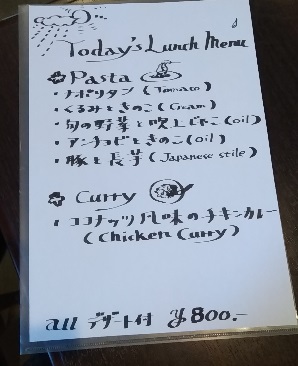 Today's Lunch Menu
Pasta
・ナポリタン (Tomato)
・くるみときのこ (Cream)
・旬の野菜と吹上だこ (oil)
・アンチョビときのこ (oil)
・豚と長芋 (Japanese stile)
Curry
・ココナッツ風味のチキンカレー
(Chicken Curry)
all デザート付 ¥800.-